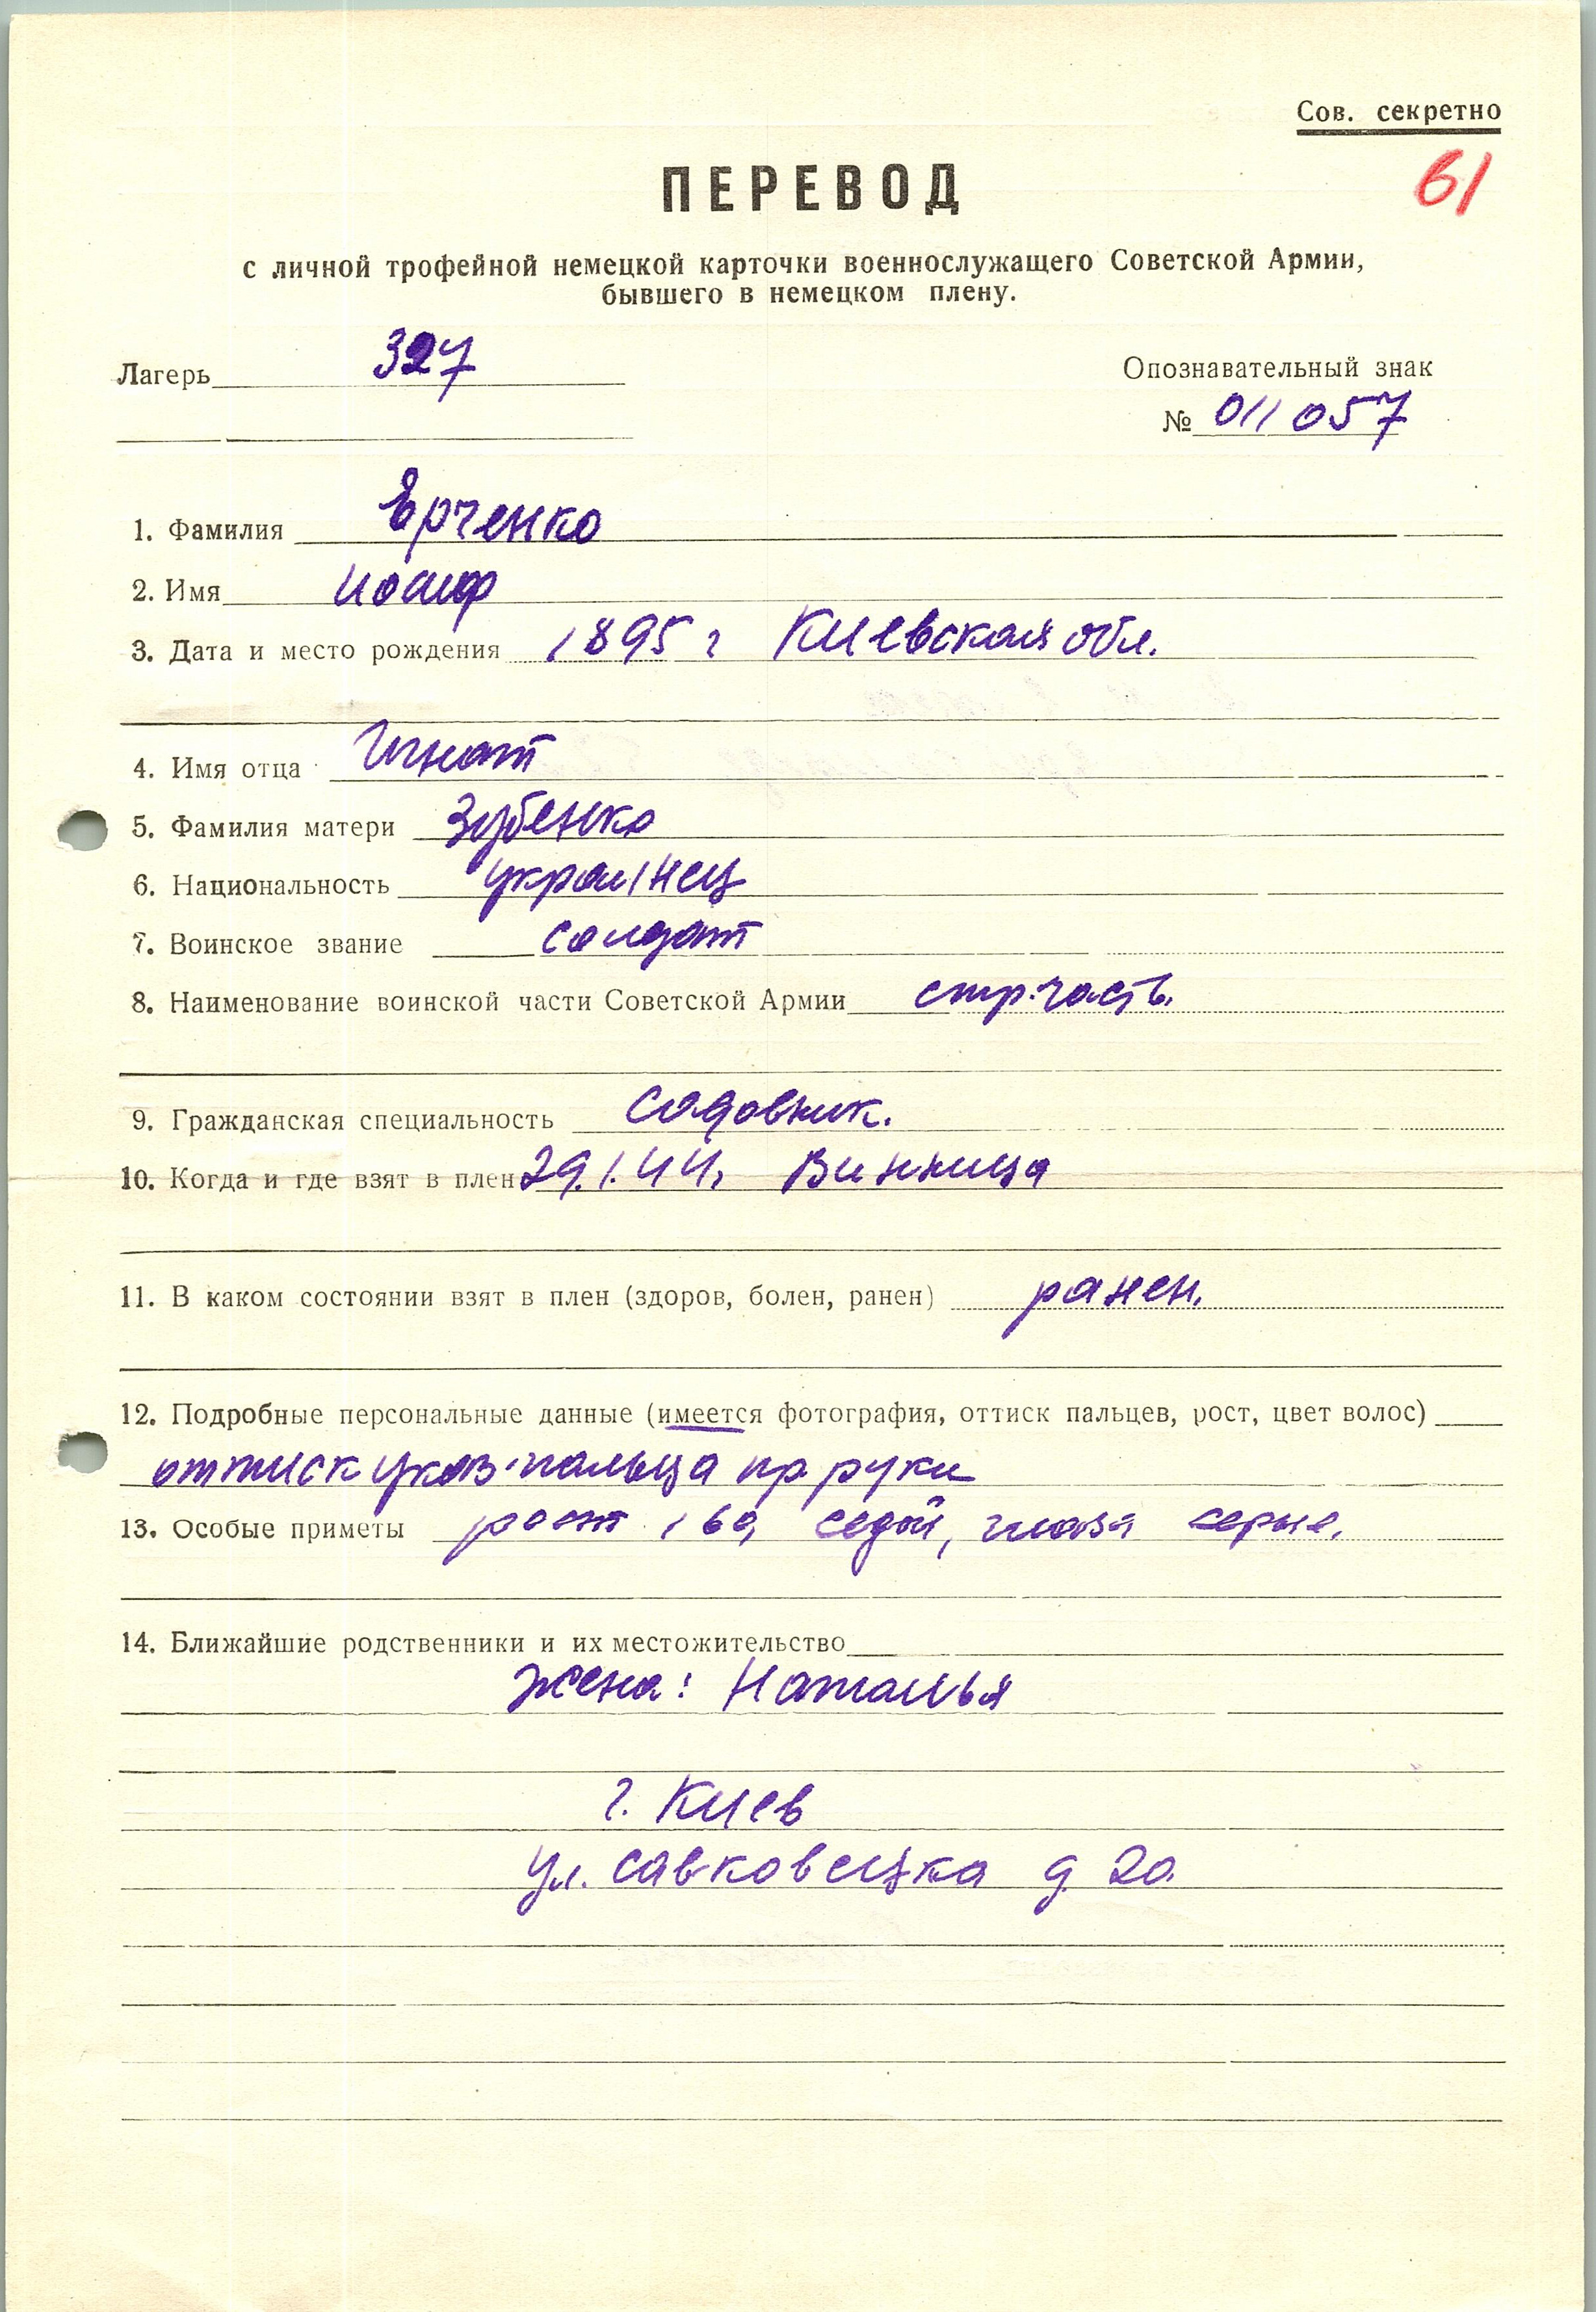 Сов. секретно
61
ПЕРЕВОД
с личной трофейной немецкой карточки военнослужащего Советской Армии,
бывшего в немецком плену.
Лагерь 327
Опознавательный знак
№ 011057
1. Фамилия Ерченко
2. Имя Иосиф
3. Дата и место рождения 1895 г Киевская обл.
4. Имя отца Игнат
5. Фамилия матери Зубенко
6. Национальность украинец
7. Воинское звание солдат
8. Наименование воинской части Советской Армии стр. часть.
9. Гражданская специальность садовник.
10. Когда и где взят в плен 29.1.44, Винница
11. В каком состоянии взят в плен (здоров, болен, ранен) ранен.
12. Подробные персональные данные (имеется фотография, оттиск пальцев, рост, цвет волос)
оттиск указ. пальца пр. руки
13. Особые приметы рост 160, седой, глаза серые.
14. Ближайшие родственники и их местожительство
жена: Наталья
г. Киев
ул. Савковецка д. 20